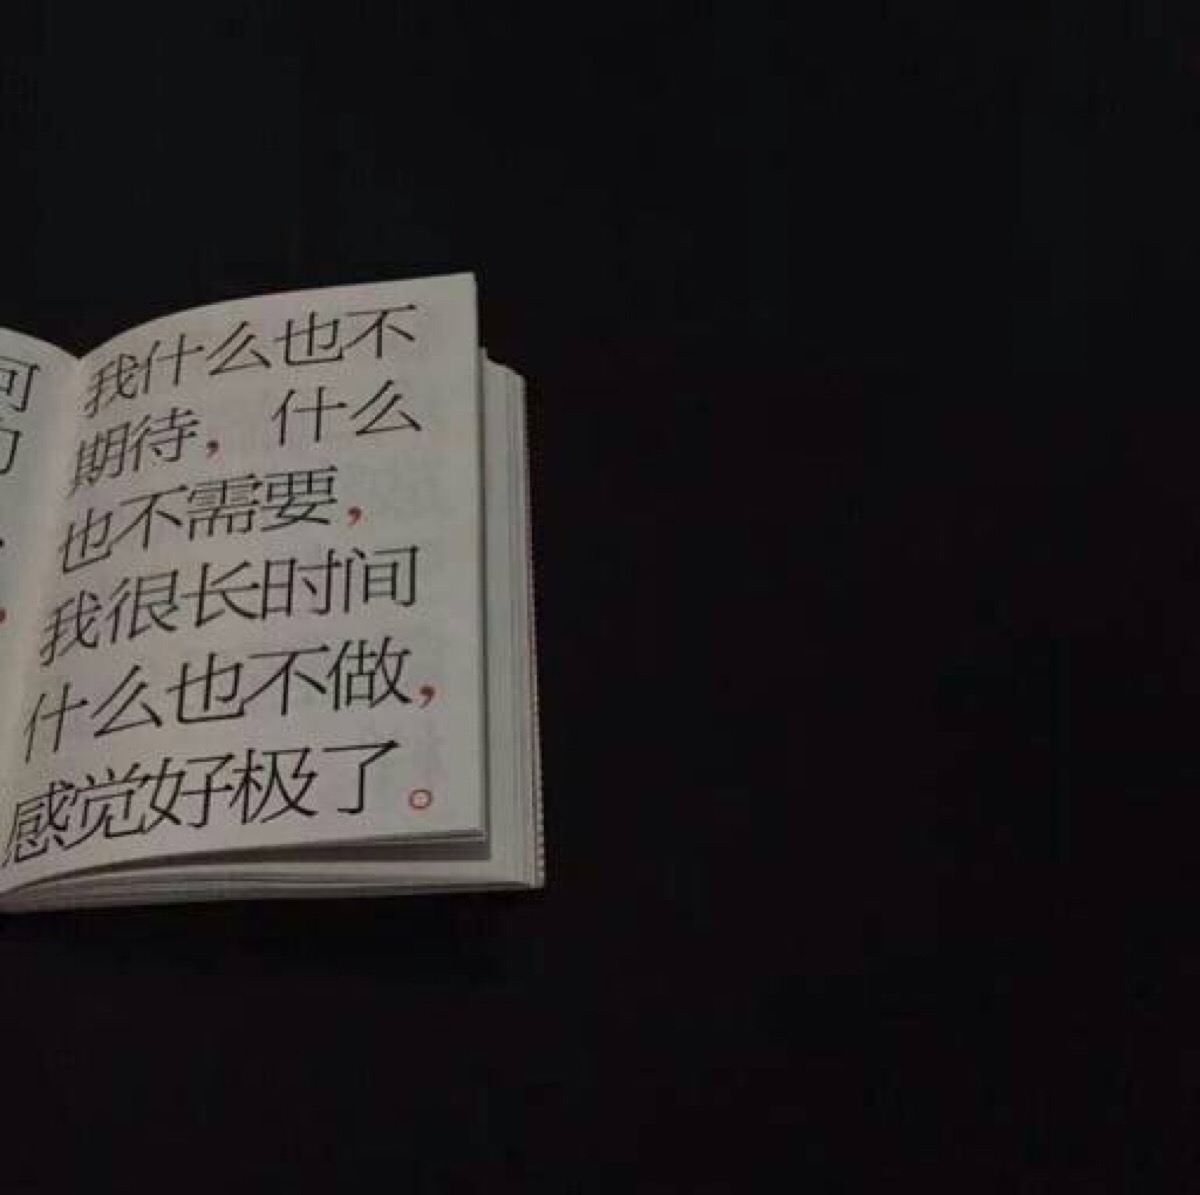 我什么也不
期待，什么
也不需要，
我很长时间
什么也不做，
感觉好极了。